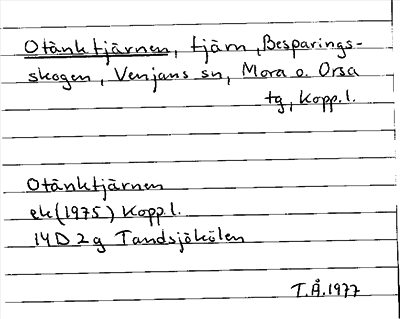 Otänktjärnen, tjärn, Besparings-
skogen, Venjans sn, Mora o. Orsa
tg, Kopp.l.
Otänktjärnen
ek(1975) Kopp.l.
14D 2g Tandsjökölen
T.Å.1977